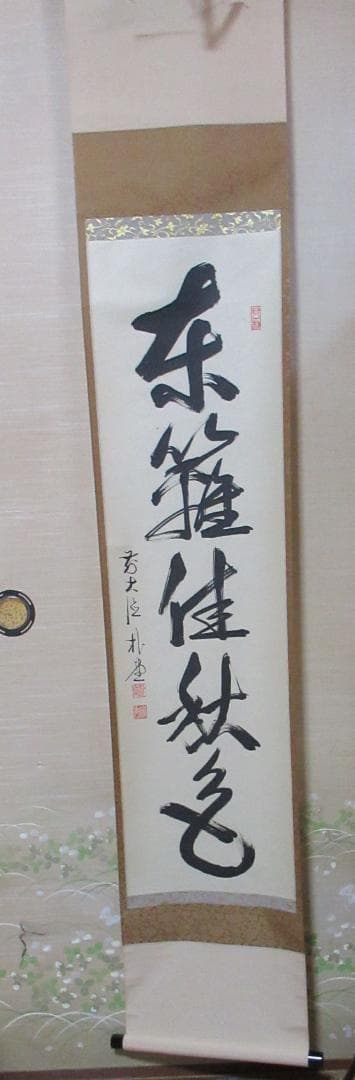 東籬佳秋色
前大徳